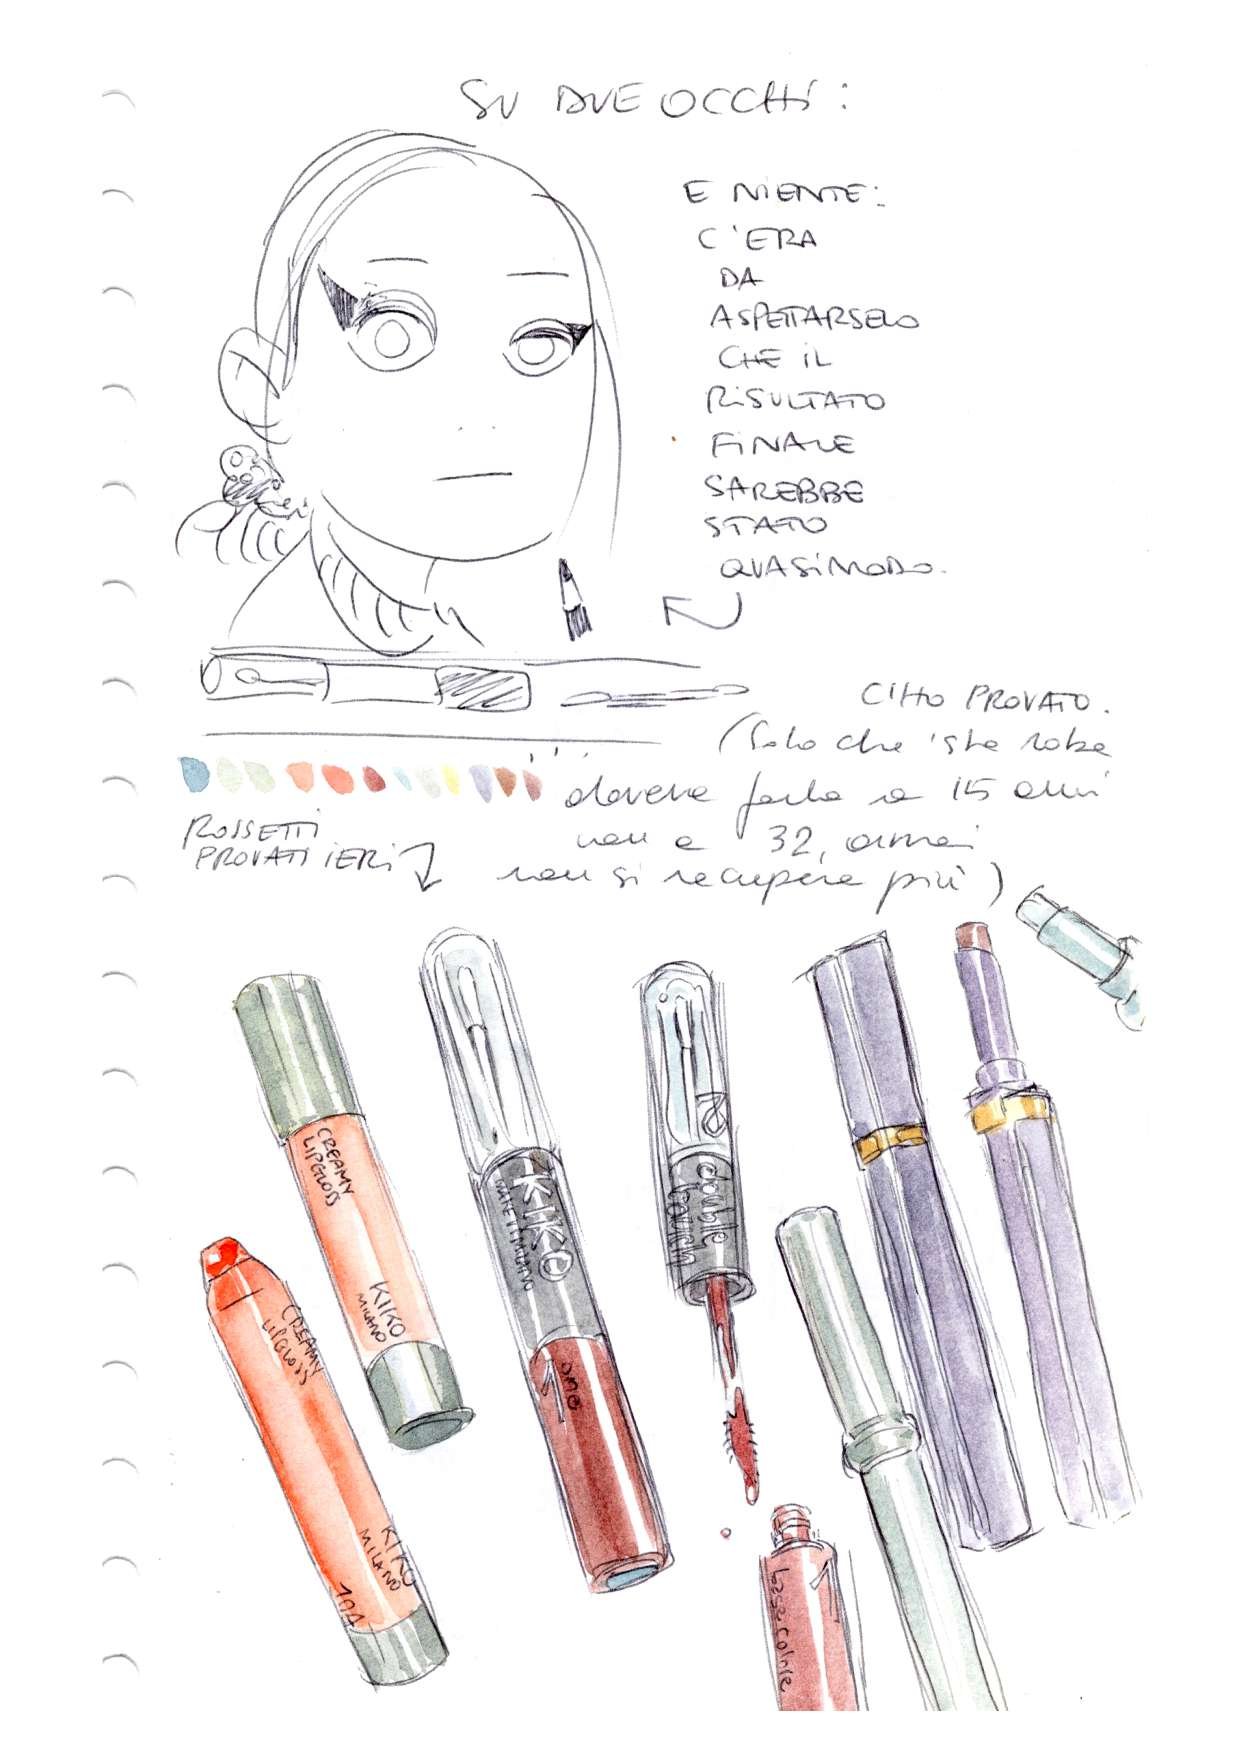 SU DUE OCCHI:
E NIENTE:
C'ERA
DA
ASPETTARSELO
CHE IL
RISULTATO
FINALE
SAREBBE
STATO
QUASIMODO.
CI HO PROVATO.
(Solo che 'sta roba
dovevo farla a 15 anni
non a 32, ormai
non si recupera più)
ROSSETTI
PROVATI IERI
CREAMY
LIPGLOSS
KIKO
MILANO
CREAMY
LIPGLOSS
KIKO
MILANO
104
KIKO
MAKE UP MILANO
one
double
touch
base colore